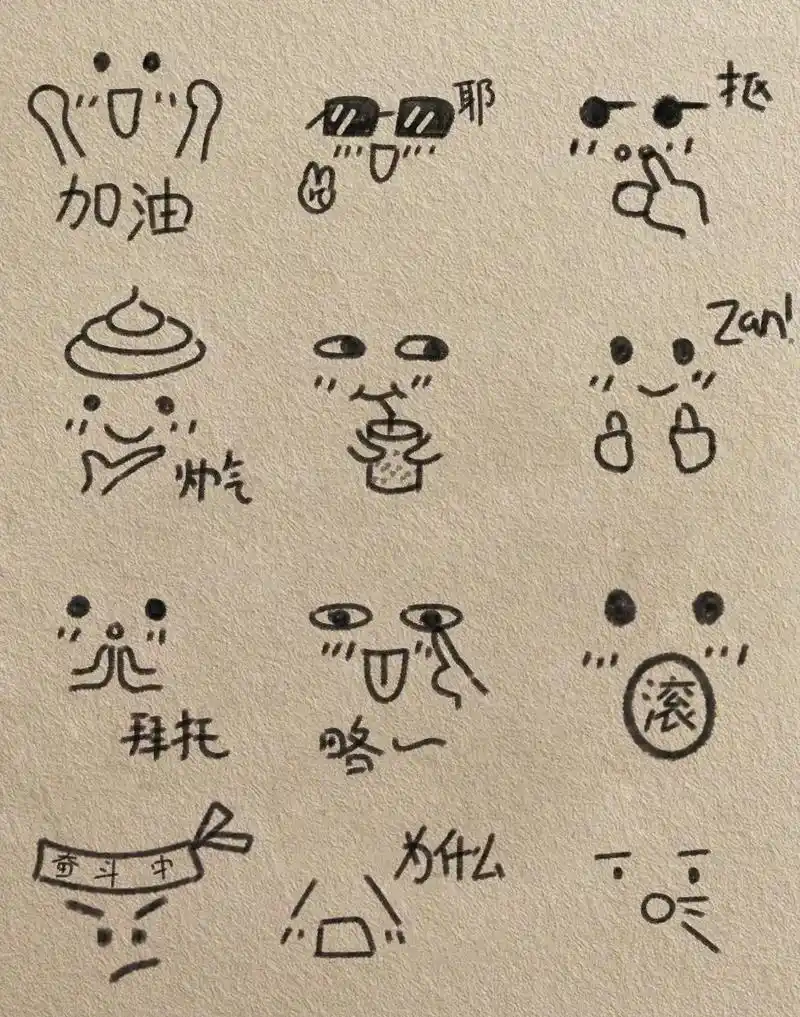 加油
耶
抠
帅气
Zan!
拜托
略～
滚
奋斗中
为什么